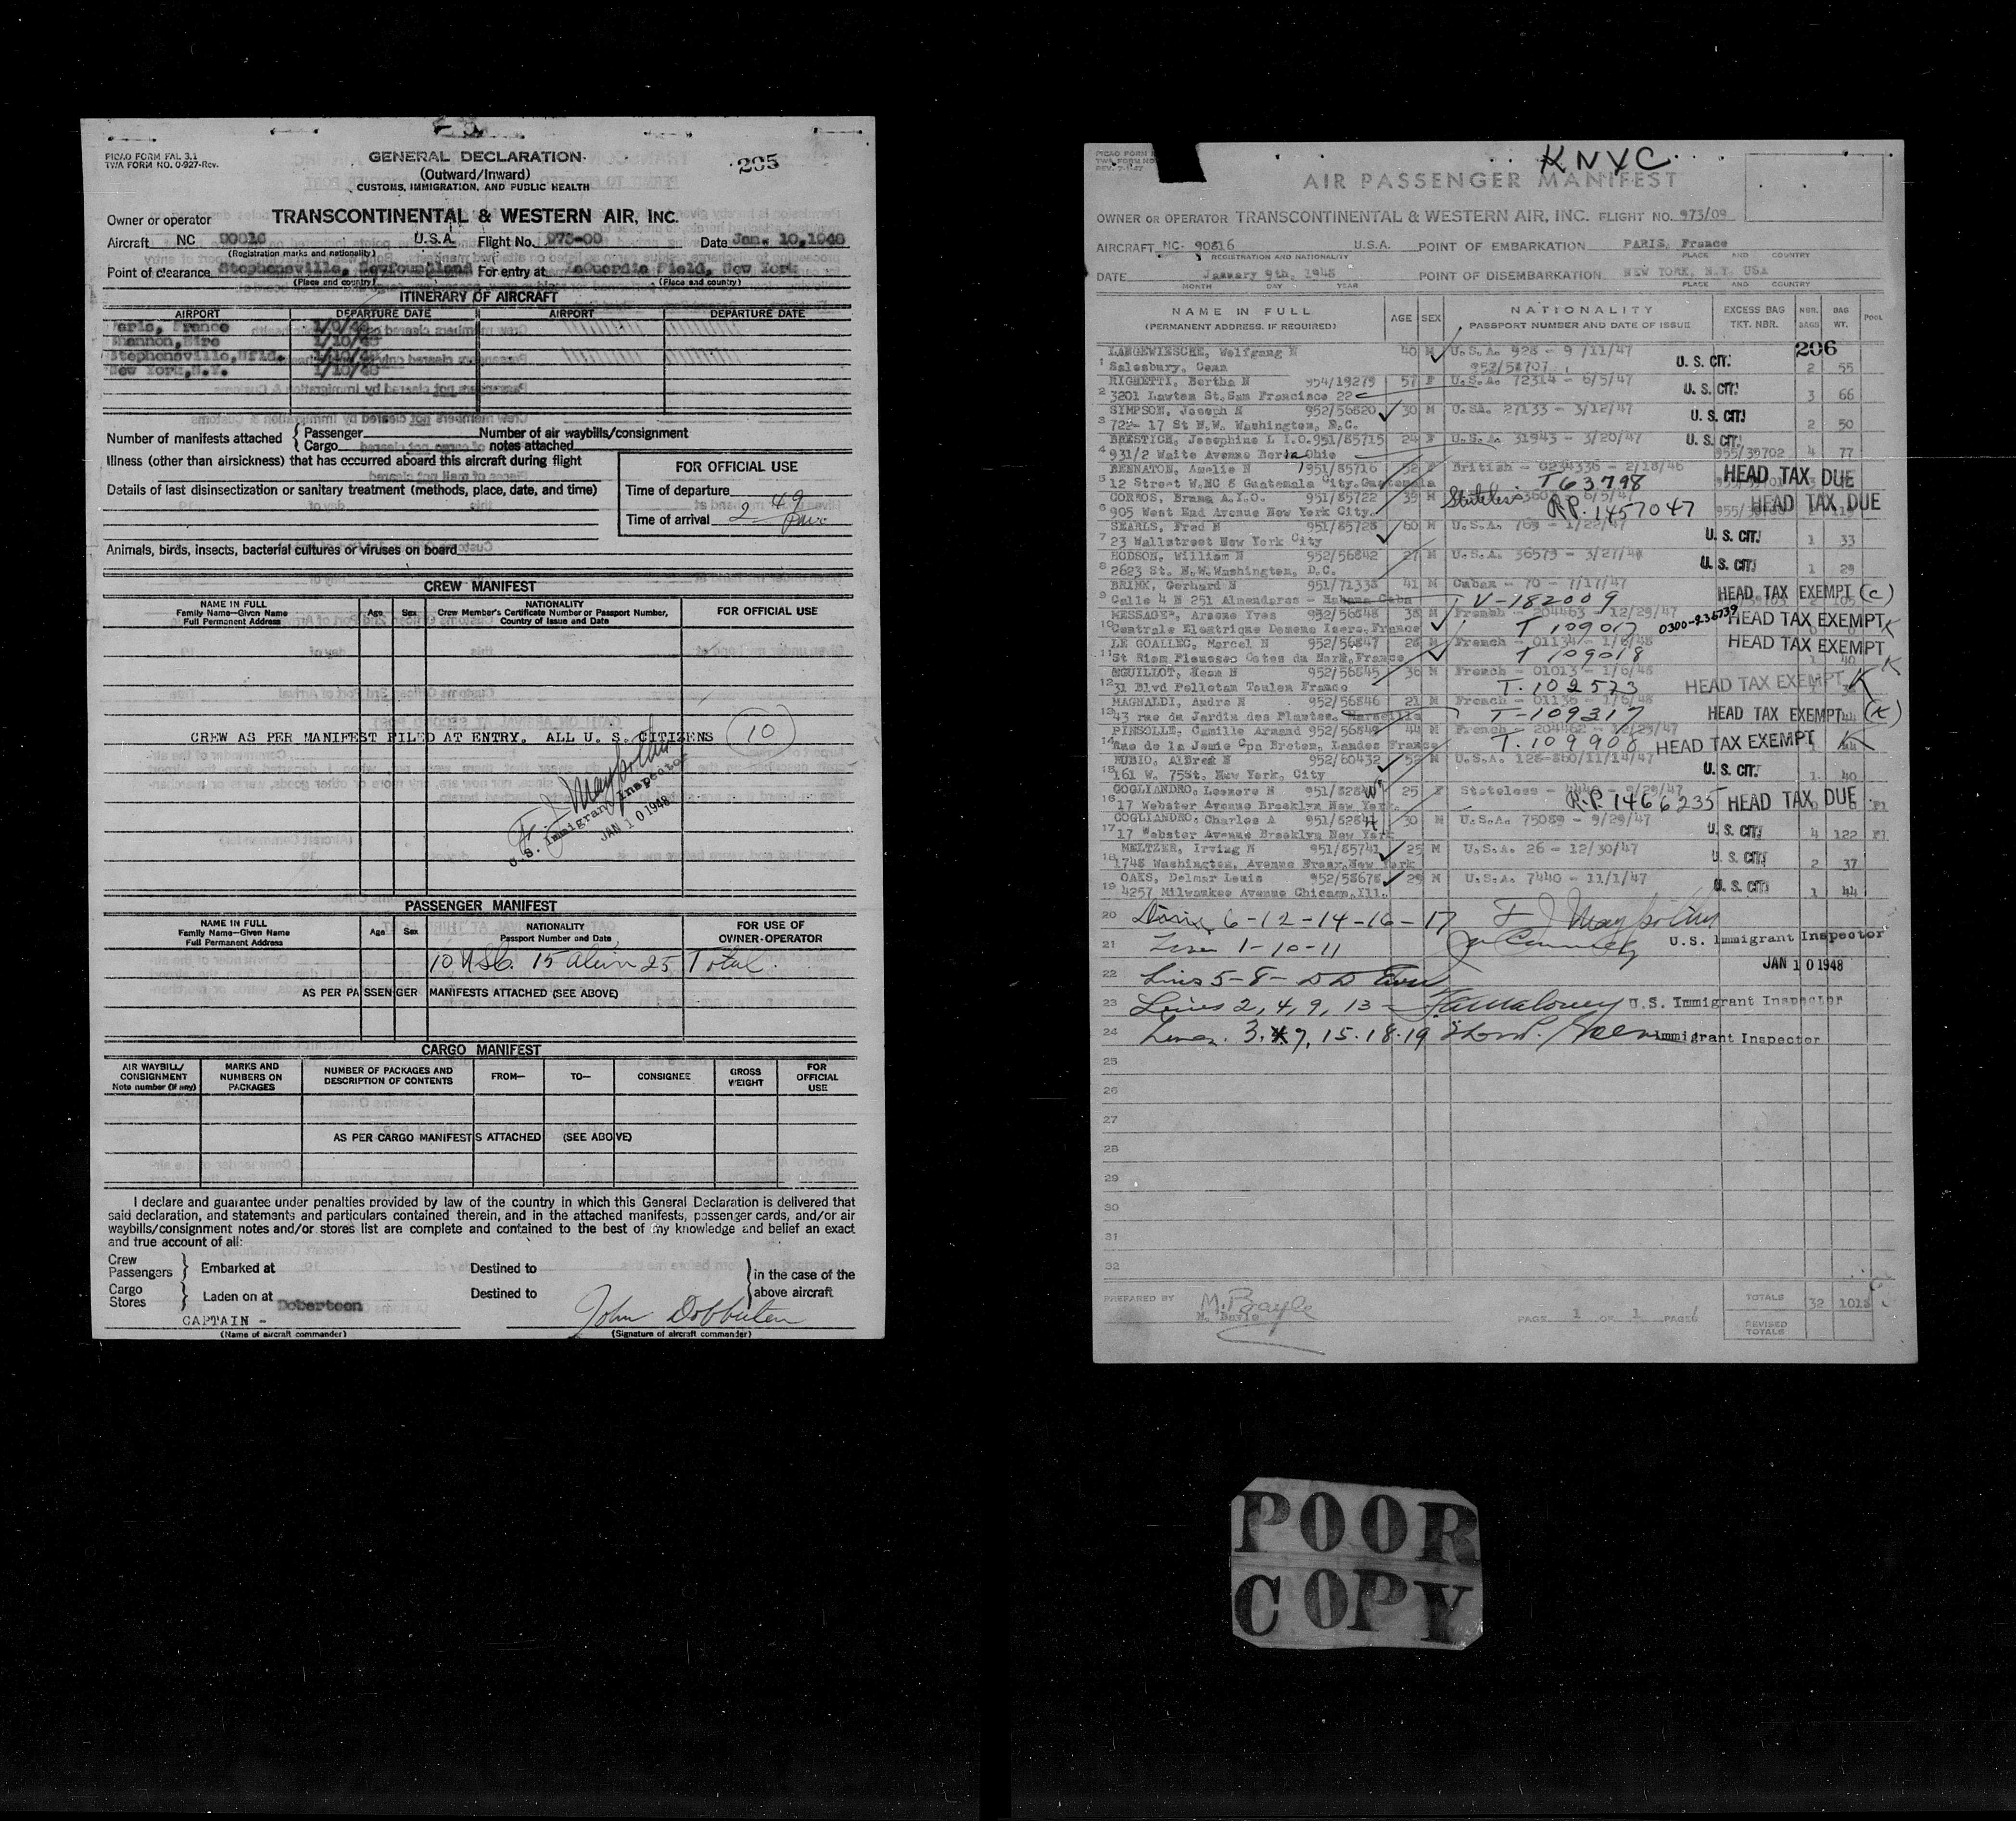 PICAO FORM FAL 3.1
TWA FORM NO. O-927-Rev.
GENERAL DECLARATION
(Outward/Inward)
CUSTOMS, IMMIGRATION, AND PUBLIC HEALTH
205
Owner or operator TRANSCONTINENTAL & WESTERN AIR, INC.
Aircraft NC 90816 U.S.A. Flight No. Date Jan. 10, 1948
(Registration marks and nationality)
Point of clearance Stephensville, Newfoundland For entry at LaGuardia Field, New York
(Place and country) (Place and country)
ITINERARY OF AIRCRAFT
AIRPORT DEPARTURE DATE AIRPORT DEPARTURE DATE
Paris, France 1/9/48
Shannon, Eire 1/10/48
Stephensville, Nfld. 1/10/48
New York, N.Y. 1/10/48
Number of manifests attached { Passenger Number of air waybills/consignment
Cargo notes attached
Illness (other than airsickness) that has occurred aboard this aircraft during flight
Details of last disinsectization or sanitary treatment (methods, place, date, and time)
FOR OFFICIAL USE
Time of departure
Time of arrival 2 49 pm
Animals, birds, insects, bacterial cultures or viruses on board
CREW MANIFEST
NAME IN FULL
Family Name—Given Name
Full Permanent Address
Age Sex
NATIONALITY
Crew Member's Certificate Number or Passport Number,
Country of Issue and Date
FOR OFFICIAL USE
CREW AS PER MANIFEST FILED AT ENTRY. ALL U. S. CITIZENS 10
U.S. Immigrant Inspector
JAN 10 1948
PASSENGER MANIFEST
NAME IN FULL
Family Name—Given Name
Full Permanent Address
Age Sex
NATIONALITY
Passport Number and Date
FOR USE OF
OWNER-OPERATOR
10 USC. 15 alien 25 Total
AS PER PASSENGER MANIFESTS ATTACHED (SEE ABOVE)
CARGO MANIFEST
AIR WAYBILL/
CONSIGNMENT
Note number (if any)
MARKS AND
NUMBERS ON
PACKAGES
NUMBER OF PACKAGES AND
DESCRIPTION OF CONTENTS
FROM— TO— CONSIGNEE
GROSS
WEIGHT
FOR
OFFICIAL
USE
AS PER CARGO MANIFESTS ATTACHED (SEE ABOVE)
I declare and guarantee under penalties provided by law of the country in which this General Declaration is delivered that
said declaration, and statements and particulars contained therein, and in the attached manifests, passenger cards, and/or air
waybills/consignment notes and/or stores list are complete and contained to the best of my knowledge and belief an exact
and true account of all:
Crew
Passengers } Embarked at Destined to
Cargo
Stores } Laden on at Destined to
} in the case of the
above aircraft
Doberteen
CAPTAIN -
(Name of aircraft commander) (Signature of aircraft commander)
PICAO FORM
REV. 7-1-47
KNYC
AIR PASSENGER MANIFEST
OWNER OR OPERATOR TRANSCONTINENTAL & WESTERN AIR, INC. FLIGHT NO. 973/09
AIRCRAFT NC- 90816 U.S.A. POINT OF EMBARKATION PARIS, France
REGISTRATION AND NATIONALITY PLACE AND COUNTRY
DATE January 9th, 1948 POINT OF DISEMBARKATION NEW YORK, N.Y. USA
MONTH DAY YEAR PLACE AND COUNTRY
NAME IN FULL
(PERMANENT ADDRESS, IF REQUIRED)
AGE SEX
NATIONALITY
PASSPORT NUMBER AND DATE OF ISSUE
EXCESS BAG
TKT. NBR.
NBR. BAGS
BAG WT.
POOL
206
LANGEWIESCHE, Wolfgang N 40 M U.S.A. 928 - 9/11/47 U. S. CIT. 2 55
1 Salesbury, Conn 952/58707
RIGHETTI, Bertha N 954/19279 57 F U.S.A. 72314 - 6/5/47 U. S. CIT. 3 66
2 3201 Lawton St. San Francisco 22
SIMPSON, Joseph N 952/56820 30 M U.SA. 27133 - 3/12/47 U. S. CIT. 2 50
3 722- 17 St N.W. Washington, D.C.
BRESTICH, Josephine L I.O. 951/85715 24 F U.S.A. 31943 - 3/20/47 U. S. CIT. 955/39702 4 77
4 931/2 Waite Avenue Ohio
BENNATON, Amelie N 951/85716 52 F British - 0234336 - 2/18/46 HEAD TAX DUE
5 12 Street W.NO 8 Guatemala City. Guatemala T 63798
CORMOS, Brama A.Y.O. 951/85722 35 M Stateless 6/5/47 HEAD TAX DUE
6 905 West End Avenue New York City. R.P. 1457047
SEARLS, Fred N 951/85728 60 M U.S.A. 769 - 1/22/47 U. S. CIT. 1 33
7 23 Wallstreet New York City
HODSON, William N 952/56842 27 M U.S.A. 36579 - 3/27/46 U. S. CIT. 1 29
8 2623 St. N.W. Washington, D.C.
BRINK, Gerhard N 951/71333 41 M Cuban - 70 - 7/17/47 HEAD TAX EXEMPT (C)
9 Calle 4 N 251 Almendares - Habana Cuba V-182009
MESSAGE, Arsene Yves 952/56848 38 M French - 204463 - 12/29/47 0300-236739 HEAD TAX EXEMPT K
10 Centrale Electrique Domene Isere, France T 109017
LE GOALLEC, Marcel N 952/56847 28 M French - 01134 - 1/6/48 HEAD TAX EXEMPT K
11 St Riom Ploueseo Cotes du Nord, France T 109018
EGUILLOT, Jean N 952/56845 36 M French - 01013 - 1/6/48 HEAD TAX EXEMPT K
12 31 Blvd Pelletan Toulon France T-102573
MAGNALDI, Andre N 952/56846 21 M French - 01136 - 1/6/48 HEAD TAX EXEMPT 44 (K)
13 43 rue du Jardin des Plantes. Marseille T-109317
PINSOLLE, Camille Armand 952/56849 44 M French - 204462 - 12/29/47 HEAD TAX EXEMPT K
14 Rue de la Jemie Cpa Breton, Landes France T.109908
RUBIO, Albert N 952/60432 52 M U.S.A. 128-860/11/14/47 U. S. CIT. 1 40
15 161 W. 75St. New York, City
COGLIANDRO, Leonore N 951/8284 25 F Stateless - 9/29/47 HEAD TAX DUE Fl
16 17 Webster Avenue Brooklyn New York. R.P. 1466235
COGLIANDRO, Charles A 951/8284 30 M U.S.A. 75089 - 9/29/47 U. S. CIT. 4 122 Fl
17 17 Webster Avenue Brooklyn New York
MELTZER, Irving N 951/85741 25 M U.S.A. 26 - 12/30/47 U. S. CIT. 2 37
18 1748 Washington, Avenue Fronx, New York
OAKS, Delmar Louis 952/58678 29 M U.S.A. 7440 - 11/1/47 U. S. CIT. 1 44
19 4257 Milwaukee Avenue Chicago, Ill.
20 6-12-14-16-17
21 1-10-11 U.S. Immigrant Inspector
JAN 10 1948
22 Lines 5-8-
23 Lines 2, 4, 9, 13 - U.S. Immigrant Inspector
24 Lines. 3. 7, 15.18.19 Immigrant Inspector
25
26
27
28
29
30
31
32
PREPARED BY M. Bayle
M. Bayle
PAGE 1 OF 1 PAGES
TOTALS 32 1018
REVISED
TOTALS
POOR
COPY